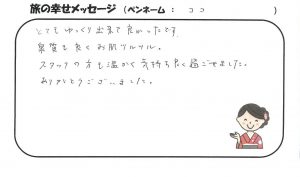 旅の幸せメッセージ （ペンネーム ： ココ ）
とてもゆっくり出来て良かったです。
泉質も良くお肌ツルツル。
スタッフの方も温かく気持ち良く過ごせました。
ありがとうございました。